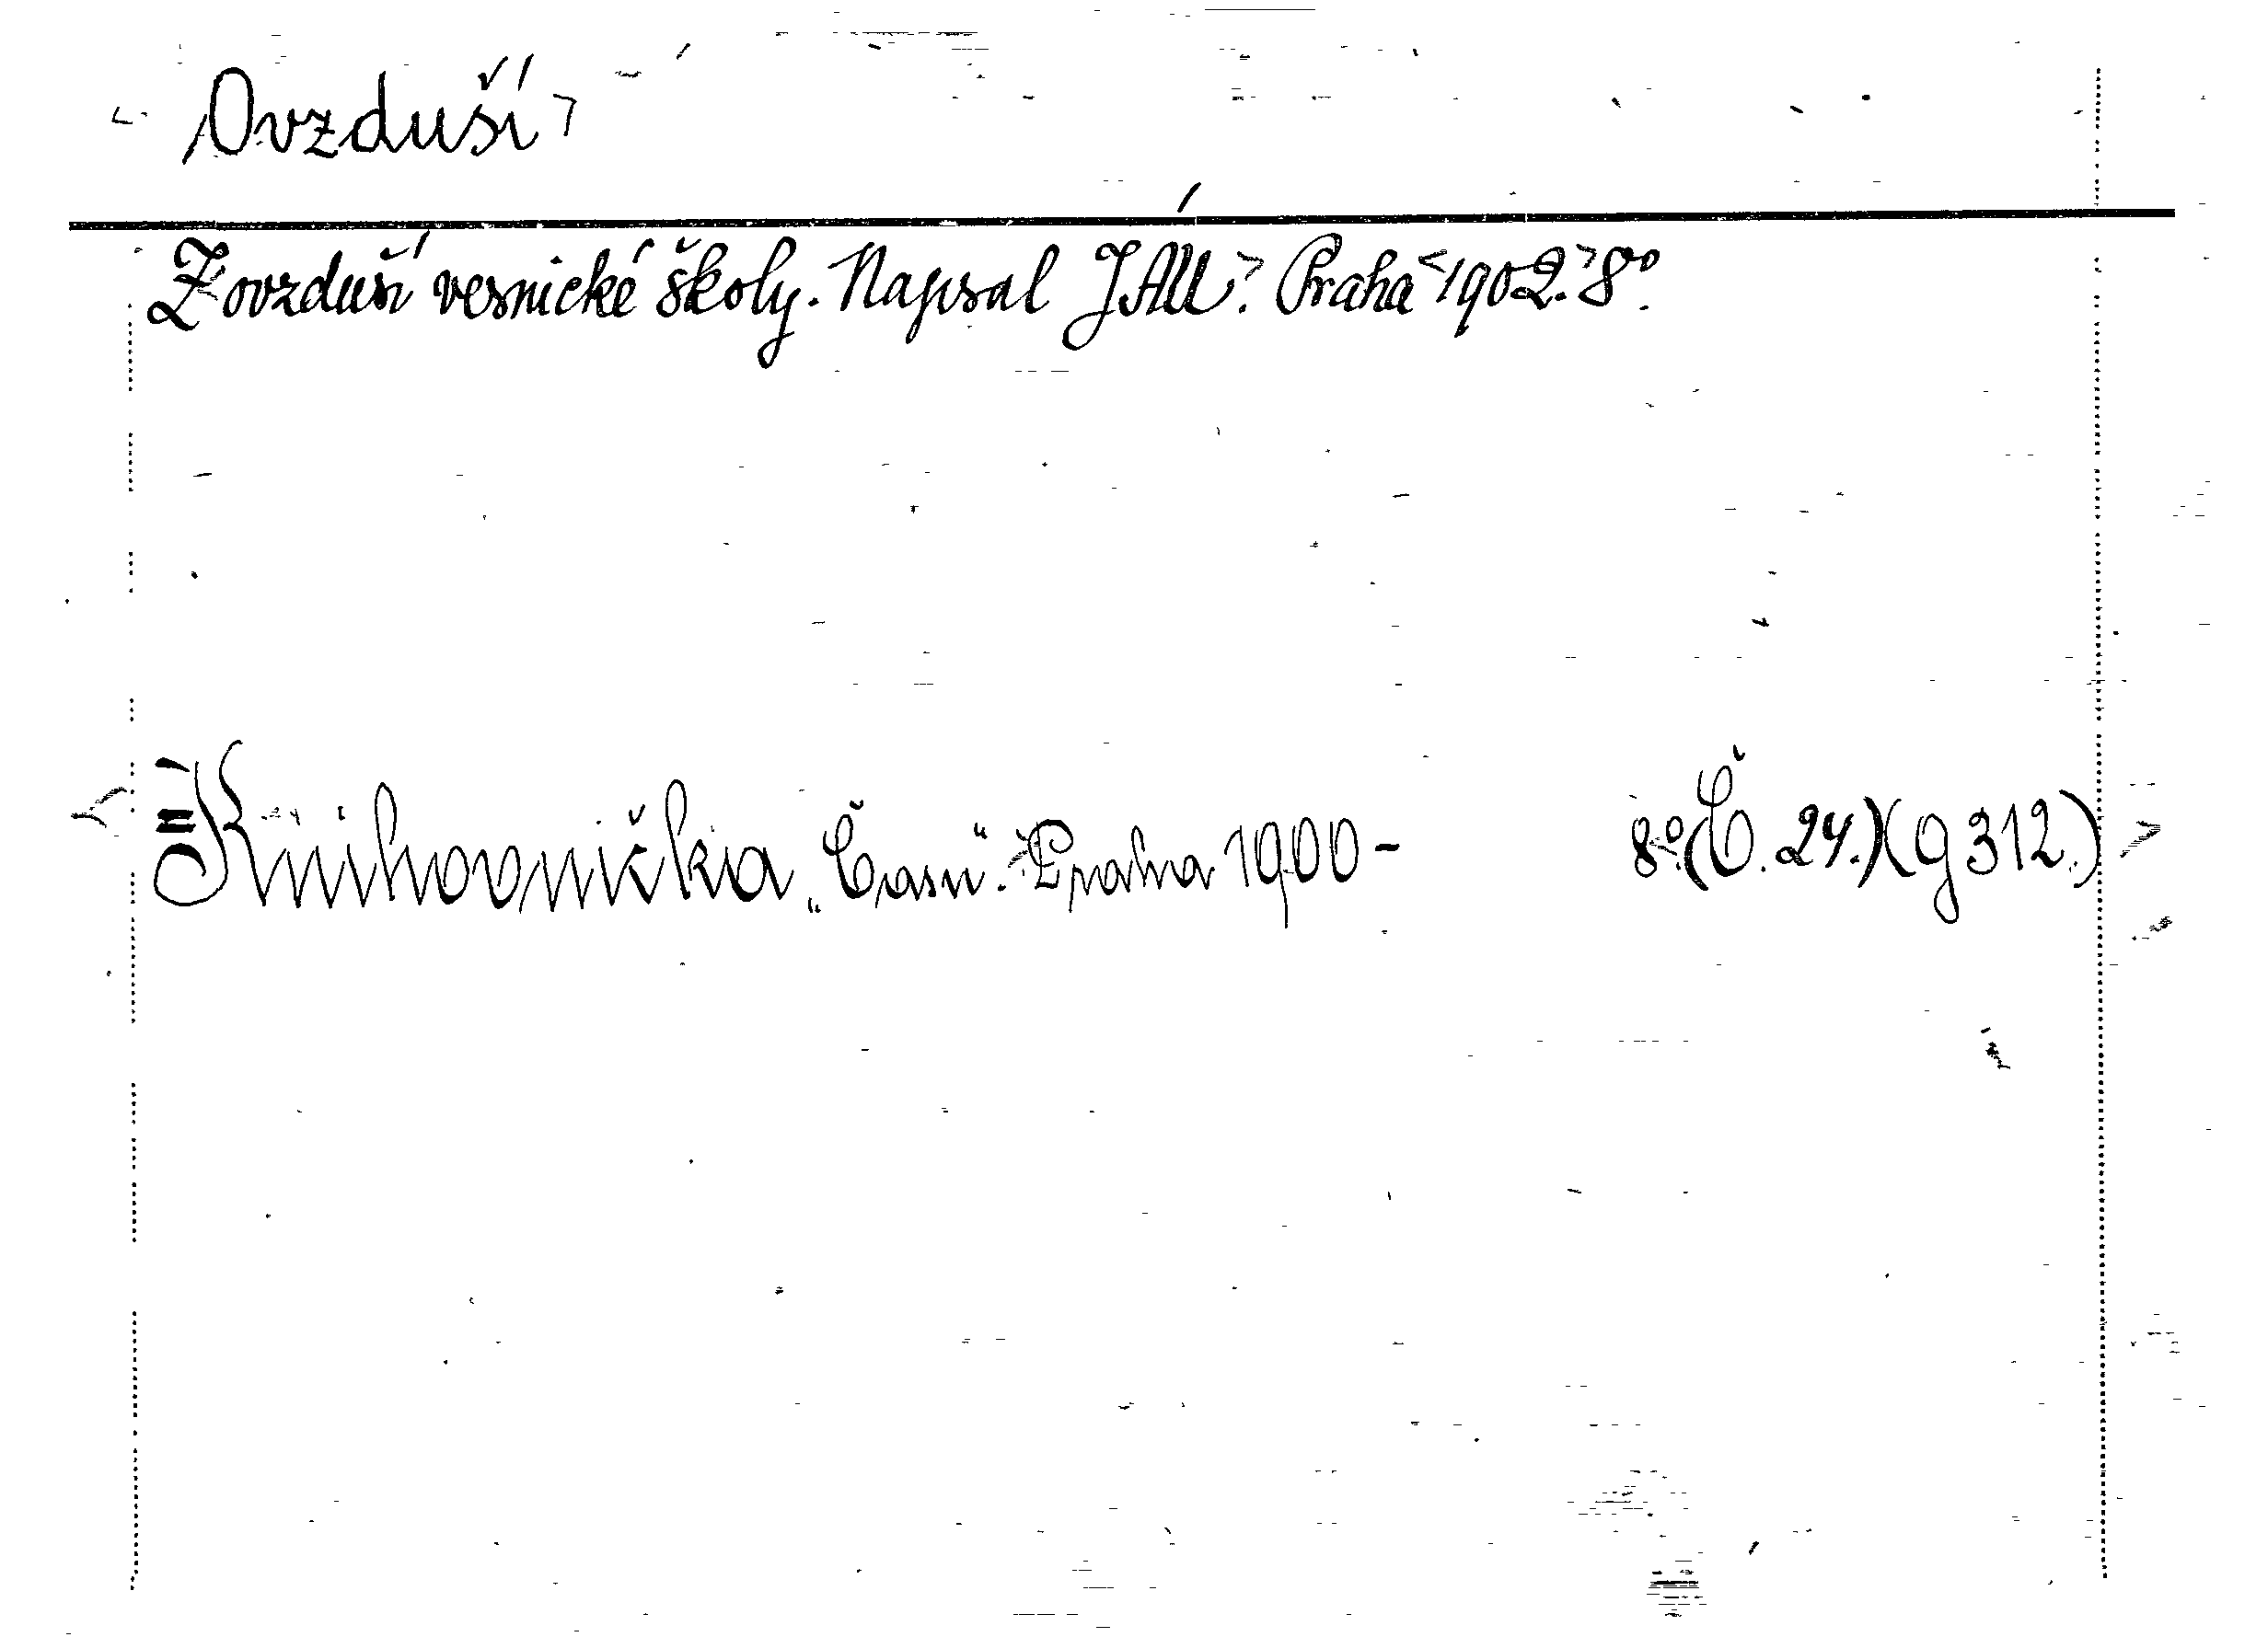 Ovzduší
Z ovzduší vesnické školy. Napsal JAU. Praha 1902. 8°.
= Knihovnička „Času“. Praha 1900 - 8°. (Č. 24.) (g 312.)